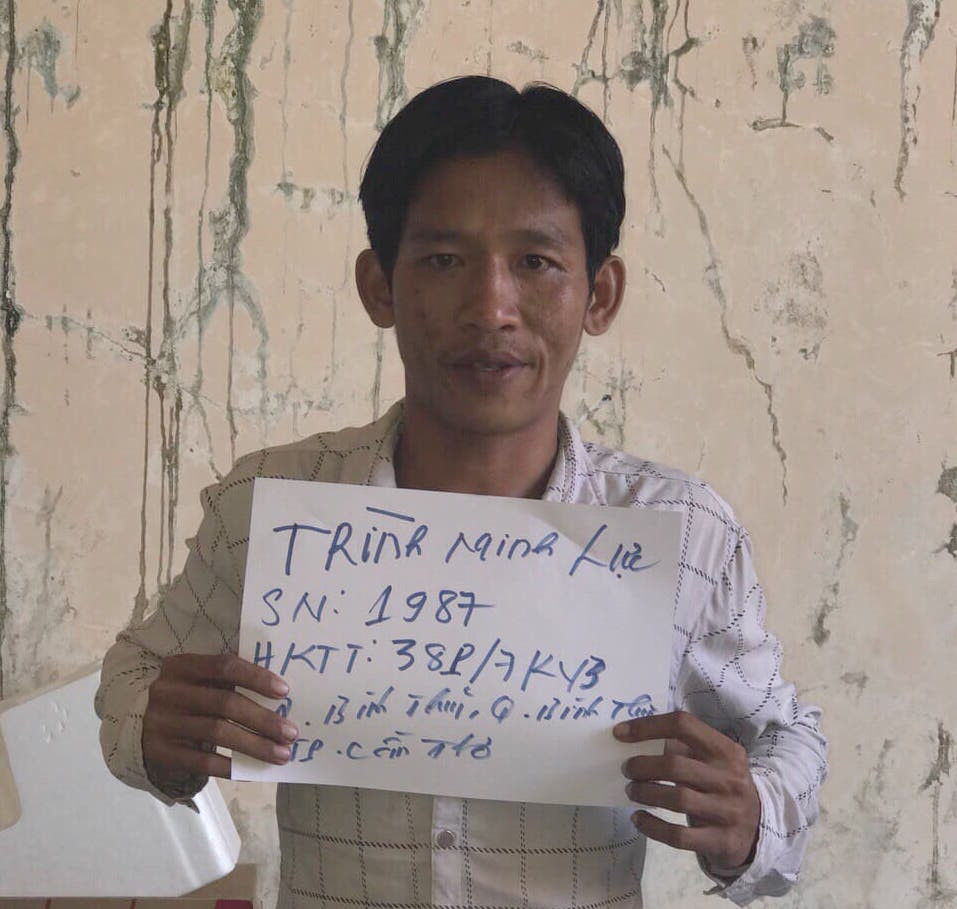 TRÌNH MINH LỰC
SN: 1987
HKTT: 38P/7 KV3
P. Bình Thuỷ, Q. Bình Thuỷ
TP. Cần Thơ